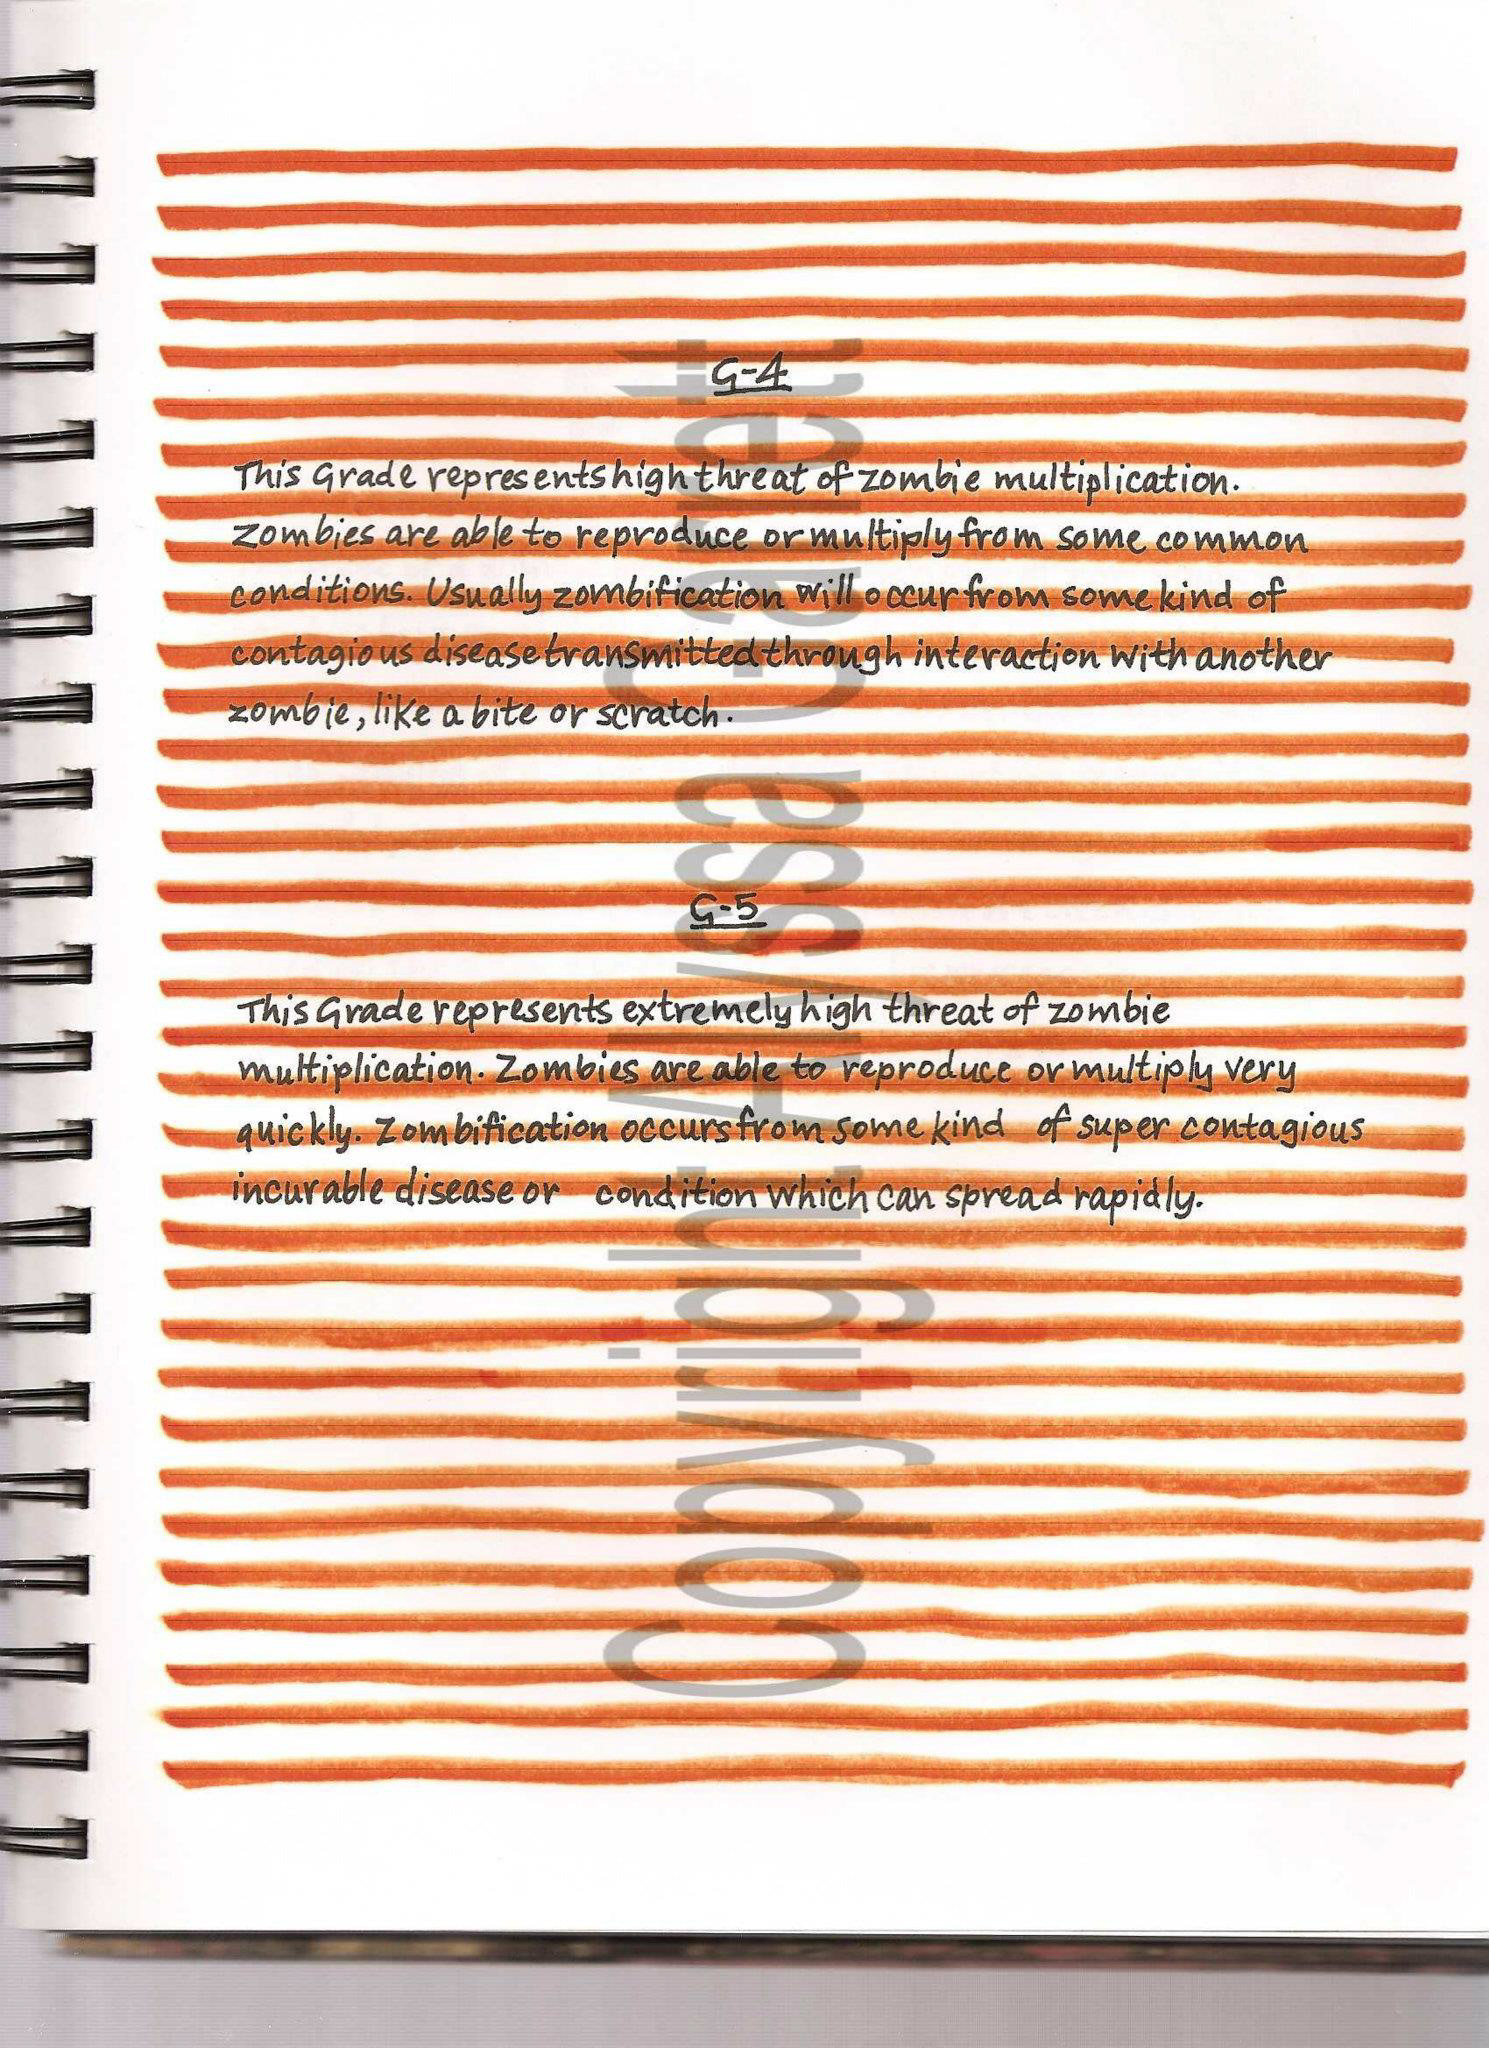 G-4
This Grade represents high threat of zombie multiplication.
Zombies are able to reproduce or multiply from some common
conditions. Usually zombification will occur from some kind of
contagious disease transmitted through interaction with another
zombie, like a bite or scratch.
G-5
This Grade represents extremely high threat of zombie
multiplication. Zombies are able to reproduce or multiply very
quickly. Zombification occurs from some kind of super contagious
incurable disease or condition which can spread rapidly.
Copyright Alyssa Garnet